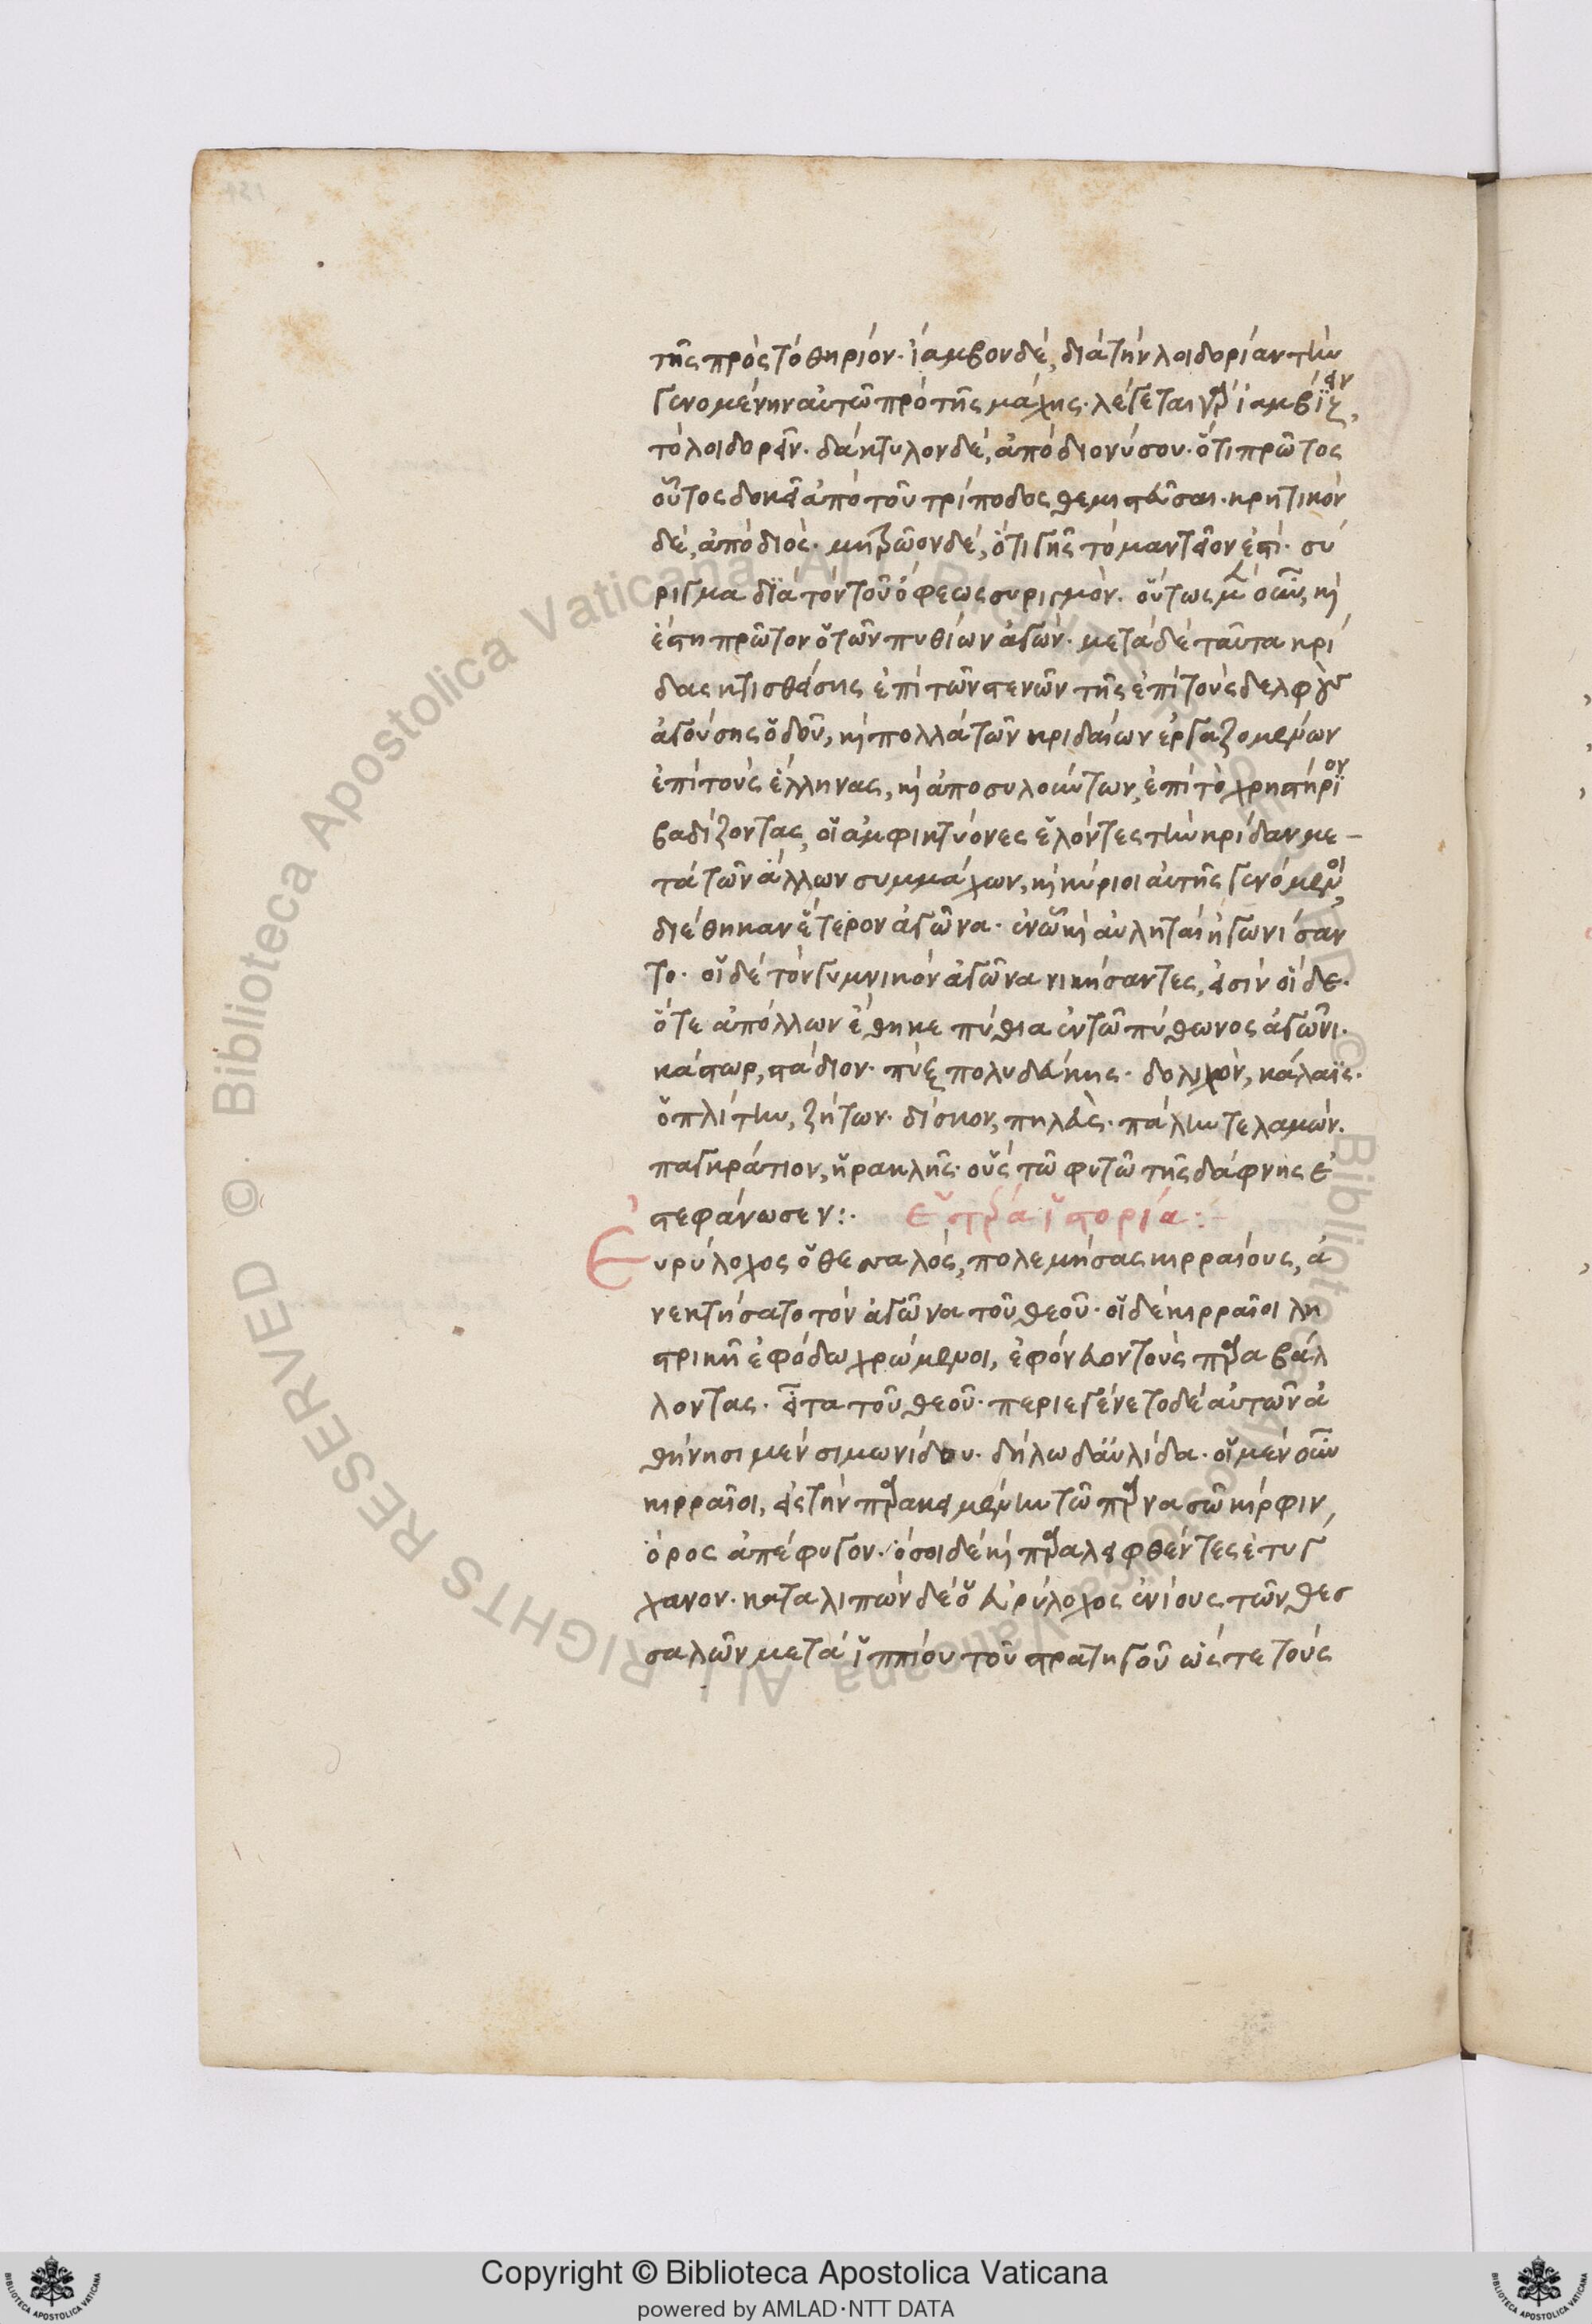 τῆς πρὸς τὸ θηρίον· ἴαμβον δὲ, διὰ τὴν λοιδορίαν τὴν
γενομένην αὐτῶ πρὸ τῆς μάχης· λέγεται γὰρ ἰαμβίζειν,
τὸ λοιδορεῖν· δάκτυλον δὲ, ἀπὸ διονύσου· ὅτι πρῶτος
οὗτος δοκεῖ ἀπὸ τοῦ τρίποδος θεμιστεῦσαι· κρητικὸν
δὲ, ἀπὸ διός· μητρῶον δὲ, ὅτι γῆς τὸ μαντεῖον ἐστί· σύ
ριγμα διὰ τὸν τοῦ ὄφεως συριγμόν· οὕτως μὲν οὖν, καὶ
ἔστη πρῶτον ὁ τῶν πυθίων ἀγών· μετὰ δὲ ταῦτα κρί
δας κτισθείσης ἐπὶ τῶν στενῶν τῆς ἐπὶ τοὺς δελφοὺς
ἀγούσης ὁδοῦ, καὶ πολλὰ τῶν κριδαίων ἐργαζομένων
ἐπὶ τοὺς ἕλληνας, καὶ ἀποσυλούντων, ἐπὶ τὸ χρηστήριον
βαδίζοντας, οἱ ἀμφικτύονες ἑλόντες τὴν κρίδαν με-
τὰ τῶν ἄλλων συμμάχων, καὶ κύριοι αὐτῆς γενόμενοι,
διέθηκαν ἕτερον ἀγῶνα· ἐν ὧ καὶ αὐληταὶ ἠγωνίσαν
το· οἱ δὲ τὸν γυμνικὸν ἀγῶνα νικήσαντες, εἰσὶν οἵδε·
ὅτε ἀπόλλων ἔθηκε πύθια ἐν τῶ πύθωνος ἀγῶνι·
κάστωρ, στάδιον· πὺξ πολυδεύκης· δολιχὸν, κάλαϊς·
ὁπλίτην, ζήτων· δίσκον, πηλεὺς· πάλην τελαμών·
παγκράτιον, ἡρακλῆς· οὓς τῶ φυτῶ τῆς δάφνης ἐ
στεφάνωσεν:· ἑτέρα ἱστορία:
Εὐρύλοχος ὁ θεσσαλὸς, πολεμήσας κιρραίους, ἀ
νεκτήσατο τὸν ἀγῶνα τοῦ θεοῦ· οἱ δὲ κιρραῖοι λη
στρικῆ ἐφόδω χρώμενοι, ἐφόνευον τοὺς παραβάλ
λοντας· εἰς τὰ τοῦ θεοῦ· περιεγένετο δὲ αὐτῶν ἀ
θήνησι μὲν σιμωνίδου· δήλω δαϋλίδα· οἱ μὲν οὖν
κιρραῖοι, εἰς τὴν παρακειμένην τῶ παρνασῶ κίρφιν,
ὄρος ἀπέφυγον· ὅσοι δὲ καὶ παραλειφθέντες ἐτύγ
χανον· καταλιπὼν δὲ ὁ εὐρύλοχος ἐνίους τῶν θεσ
σαλῶν μετὰ ἱππίου τοῦ στρατηγοῦ ὥστε τοὺς
Copyright © Biblioteca Apostolica Vaticana
powered by AMLAD·NTT DATA